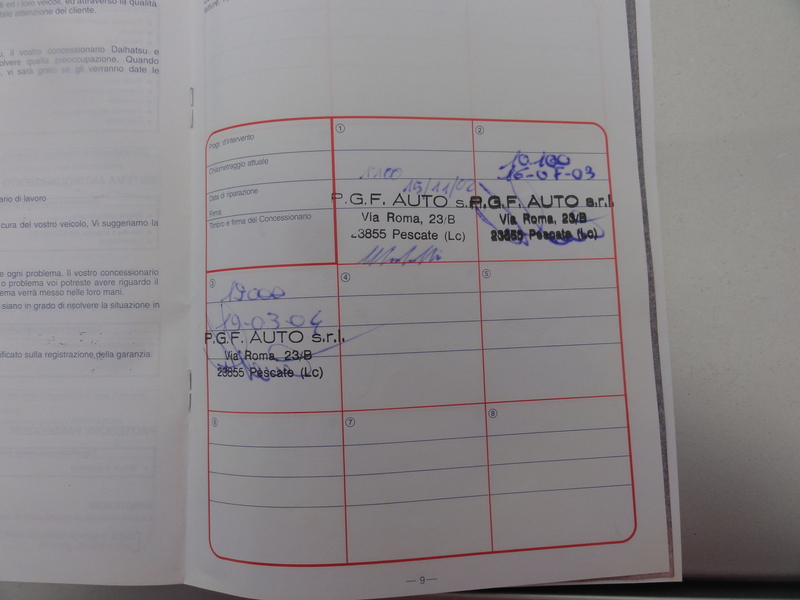 ti ed i loro veicoli, ed attraverso la qualità
tale attenzione del cliente.
u, il vostro concessionario Daihatsu e
solvere quella preoccupazione. Quando
, vi sarà grato se gli verranno date le
ario di lavoro
cura del vostro veicolo, Vi suggeriamo la
e ogni problema. Il vostro concessionario
o problema voi potreste avere riguardo il
ema verrà messo nelle loro mani.
siano in grado di risolvere la situazione in
ificato sulla registrazione della garanzia.
Progr. d'intervento
Chilometraggio attuale
Data di riparazione
Firma
Timbro e firma del Concessionario
①
15/11/02
P.G.F. AUTO s.
Via Roma, 23/B
23855 Pescate (Lc)
②
10.100
16-07-03
P.G.F. AUTO s.r.l.
Via Roma, 23/B
23855 Pescate (Lc)
③
19000
19-03-04
P.G.F. AUTO s.r.l.
Via Roma, 23/B
23855 Pescate (Lc)
④
⑤
⑥
⑦
⑧
— 9 —